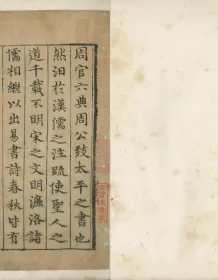 周官六典周公致太平之書也
然汨於漢儒之注䟽使聖人之
道千載不明宋之文明濂洛諸
儒相繼以出易書詩春秋皆有